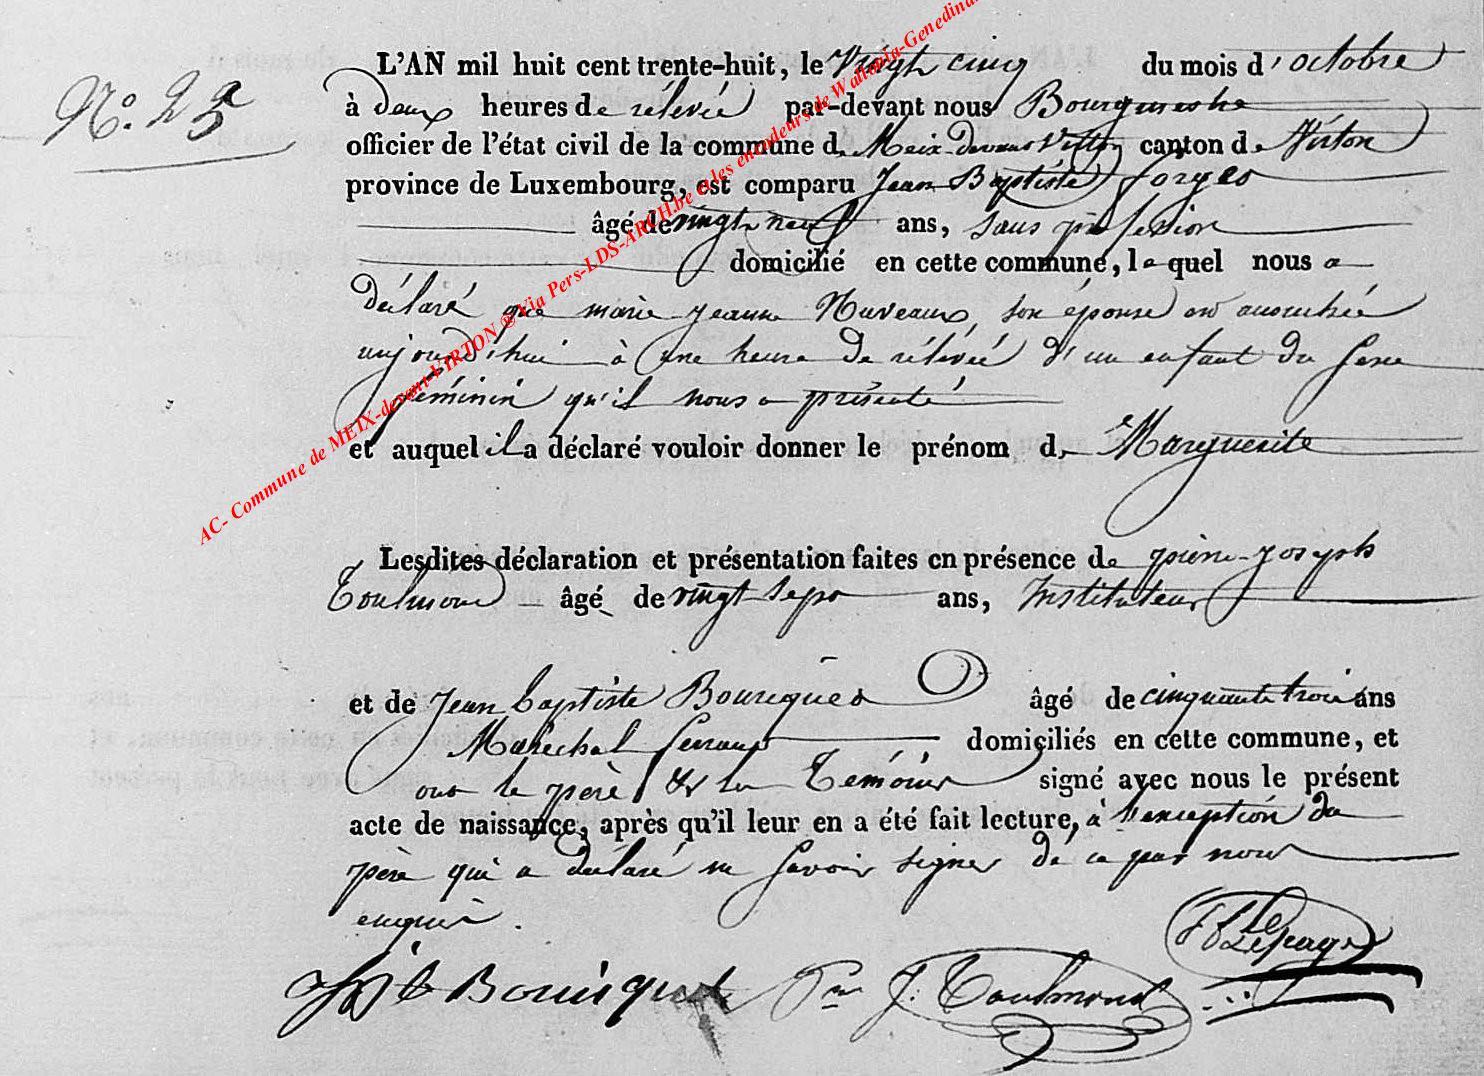 N°. 25
L'AN mil huit cent trente-huit, le vingt cinq du mois d'octobre
à deux heures de rélévée par-devant nous Bourgmestre
officier de l'état civil de la commune de Meix-devant Virton canton de Virton
province de Luxembourg, est comparu Jean Baptiste forges
âgé de vingt neuf ans, sans profession
domicilié en cette commune, lequel nous a
déclaré que marie jeanne Naveaux son épouse est accouchée
aujourd'hui à une heure de rélévée d'un enfant du sexe
féminin qu'il nous a présenté
et auquel il a déclaré vouloir donner le prénom de Marguerite
Lesdites déclaration et présentation faites en présence de pierre-joseph
Toulmond âgé de vingt sept ans, Instituteur
et de Jean baptiste Bourégues âgé de cinquante trois ans
Maréchal ferrant domiciliés en cette commune, et
ont le père et les témoins signé avec nous le présent
acte de naissance, après qu'il leur en a été fait lecture, à l'exception du
père qui a déclaré ne savoir signer de ce par nous
enquis.
J. Toulmond Lepage
AC- Commune de MEIX-devant-VIRTON ® Via Pers-LDS-ARCH.be et les encodeurs de Wallonia-Genedina